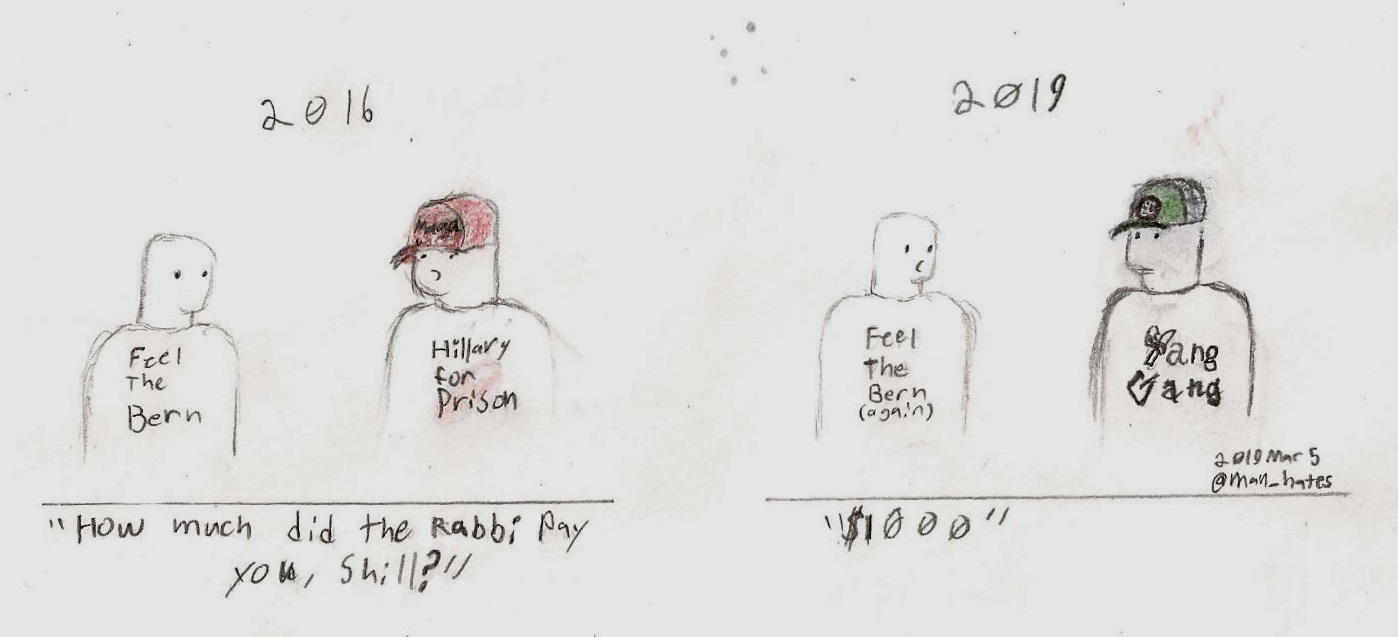 2016
Maga
Feel
The
Bern
Hillary
for
Prison
"How much did the Rabbi Pay
you, Shill?"
2019
Feel
the
Bern
(again)
Yang
Gang
2019 Mar 5
@man_hates
"$1000"